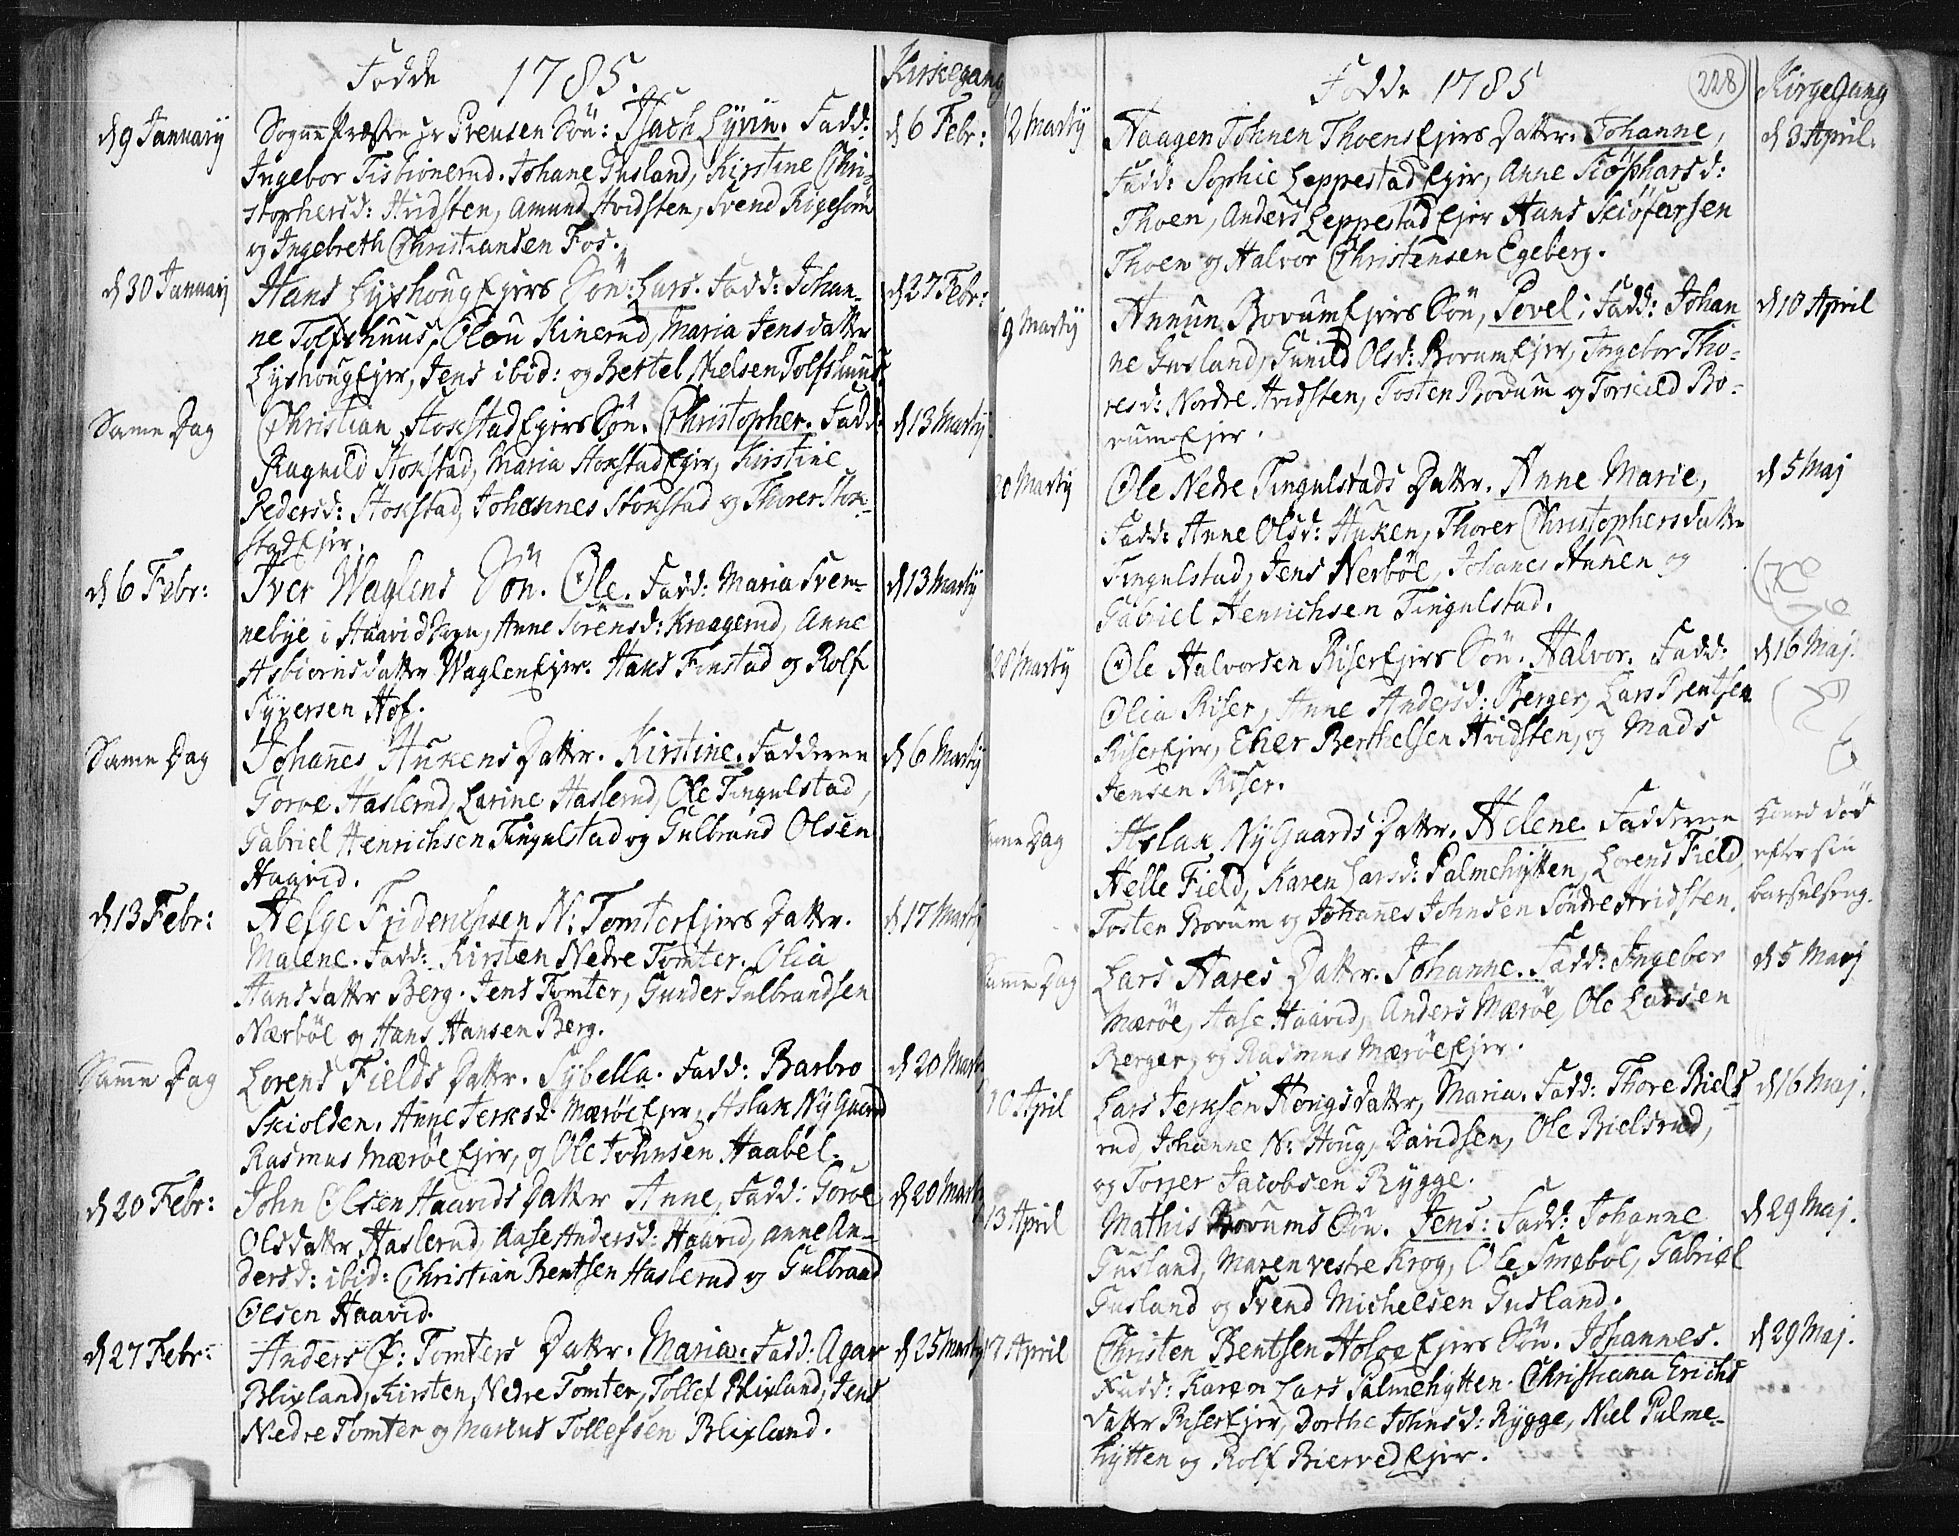 Fødde 1785.
Kirkegang
d 9 Januarij
Sognepræsten Hr Preusen Sön: Isach Lyvin. Fadd:
d 6 Febr:
Ingebor Tistionerud. Johane Gusland, Kirstine Chri-
stophersd: Hvidsten, Amund Hvidsten, Svend
og Ingebreth Christiansen Fos.
d 30 Januarij
Hans Lyshoug Ejers Sön: Lars. Fadd: Johan-
d 27 Febr:
ne Tolfshuus, Olou Kinerud, Maria Jens datter
Lyshoug Ejer, Jens ibid: og Bertel Nielsen Tolfshuus
Same Dag
Christian Stokstad Ejers Sön. Christopher. Fadd:
d 13 Martij
Ragnild Stokstad, Maria Stokstad Ejer, Kirstine
Pedersd: Stokstad, Johannes Stokstad og Thorer Stok-
stad Ejer.
d 6 Febr:
Iver Waglens Sön. Ole. Fadd: Maria Svem-
d 13 Martij
nebye i Haavid Sogn, Anne Sörensd: Kraagerud, Anne
Asbiörnsdatter Waglen Ejer. Hans Finstad og Rolf
Syversen Hof.
Same Dag
Johannes Hukens Datter. Kirstine. Fadderne
d 6 Martij
Gorve Haslerud, Larine Haslerud, Ole Tingulstad,
Gabriel Henrichsen Tingulstad og Gulbrand Olsen
Haavid.
d 13 Febr:
Helge Fridenchsen N: Tomter Ejers Datter.
d 17 Martij
Malene. Fadd: Kirsten Nedre Tomter. Olia
Hansdatter Berg. Jens Tomter, Gunder Gulbrandsen
Nærböl og Hans Hansen Berg.
Same Dag
Lorens Fields Datter. Sybella. Fadd: Barbro
d 20 Martij
Skiolden. Anne Jerksd: Mæröe Ejer, Aslak Nÿ Gaard
Rasmus Mæröe Ejer, og Ole Johnsen Haaböl.
d 20 Febr:
John Olsen Haavids Datter Anne, Fadd: Gorve
d 20 Martij
Olsdatter Haslerud, Aase Andersd: Haavid, Anne An-
dersd: ibid: Christian Bentsen Haslerud og Gulbrand
Olsen Haavid.
d 27 Febr:
Anders Ö: Tomters Datter. Maria. Fadd: Agar
d 25 Martij
Blixland, Kirsten Nedre Tomter, Tollef Blixland, Jens
Nedre Tomter og Marcus Tollefsen Blixland.
Fødde 1785
228
Kirgegang
2 Martij
Haagen Johnen Thoens Ejers Datter. Johanne,
d 3 April.
Fadd: Sophie Leppestad Ejer, Anne Siöpharsd:
Thoen, Anders Leppestad Ejer Hans Siöfarsen
Thoen og Halvor Christensen Egeberg.
9 Martij
Annun Borum Ejers Sön, Povel; Fadd: Johan
d 10 April
ne Gusland, Gunild Olsd: Borum Ejer, Ingebor Tho-
resd: Nordre Hvidsten, Tosten Borum og Torkild Bo-
rum Ejer.
20 Martij
Ole Nedre Tingulstads Datter. Anne Marie,
d 5 Maj
Fadd: Anne Olsd: Huken, Thorer Christophersdatter
Tingulstad, Jens Nerböe, Johanes Huken og
Gabriel Henrichsen Tingulstad.
28 Martij
Ole Halvorsen Riser Ejers Sön. Halvor. Fadd:
d 16 Maj.
Olia Riser, Anne Andersd: Berger, Lars Bentsen
Riser Ejer, Eler Berthelsen Hvidsten, og Mads
Jensen Riser.
Same Dag
Aslak Nÿ Gaards Datter. Helene Fadderne
Konen död
Helle Field, Karen Larsd: Palmehytten, Lorens Field,
efter sin
Tosten Borum og Johannes Johnsen Söndre Hvidsten.
barselseng.
Samme Dag
Lars Hares Datter. Johanne. Fadd: Ingebor
d 5 Maj
Mæröe, Aase Haavid, Anders Mæröe, Ole Larsen
Berger, og Rasmus Mæröe Ejer.
10 April
Lars Jerksen Hougs Datter, Maria. Fadd: Thore Biels
d 16 Maj.
rud, Johanne N: Houg, Davidsen, Ole Bielsrud,
og Torjer Jacobsen Rygge.
13 April
Mathis Borums Sön. Jens: Fadd: Johanne
d 29 Maj.
Gusland, Maren vestre Krog, Ole Smeböl, Gabriel
Gusland og Svend Michelsen Gusland.
17 April
Christen Bentsen Holöe Ejers Sön. Johannes.
d 29 Maj.
Fadd: Karen Lars Palmehytten. Christiana Erichs
datter Riser Ejer, Dorthe Johnsd: Rygge, Niel Palme-
hytten og Rolf Bierved Ejer.